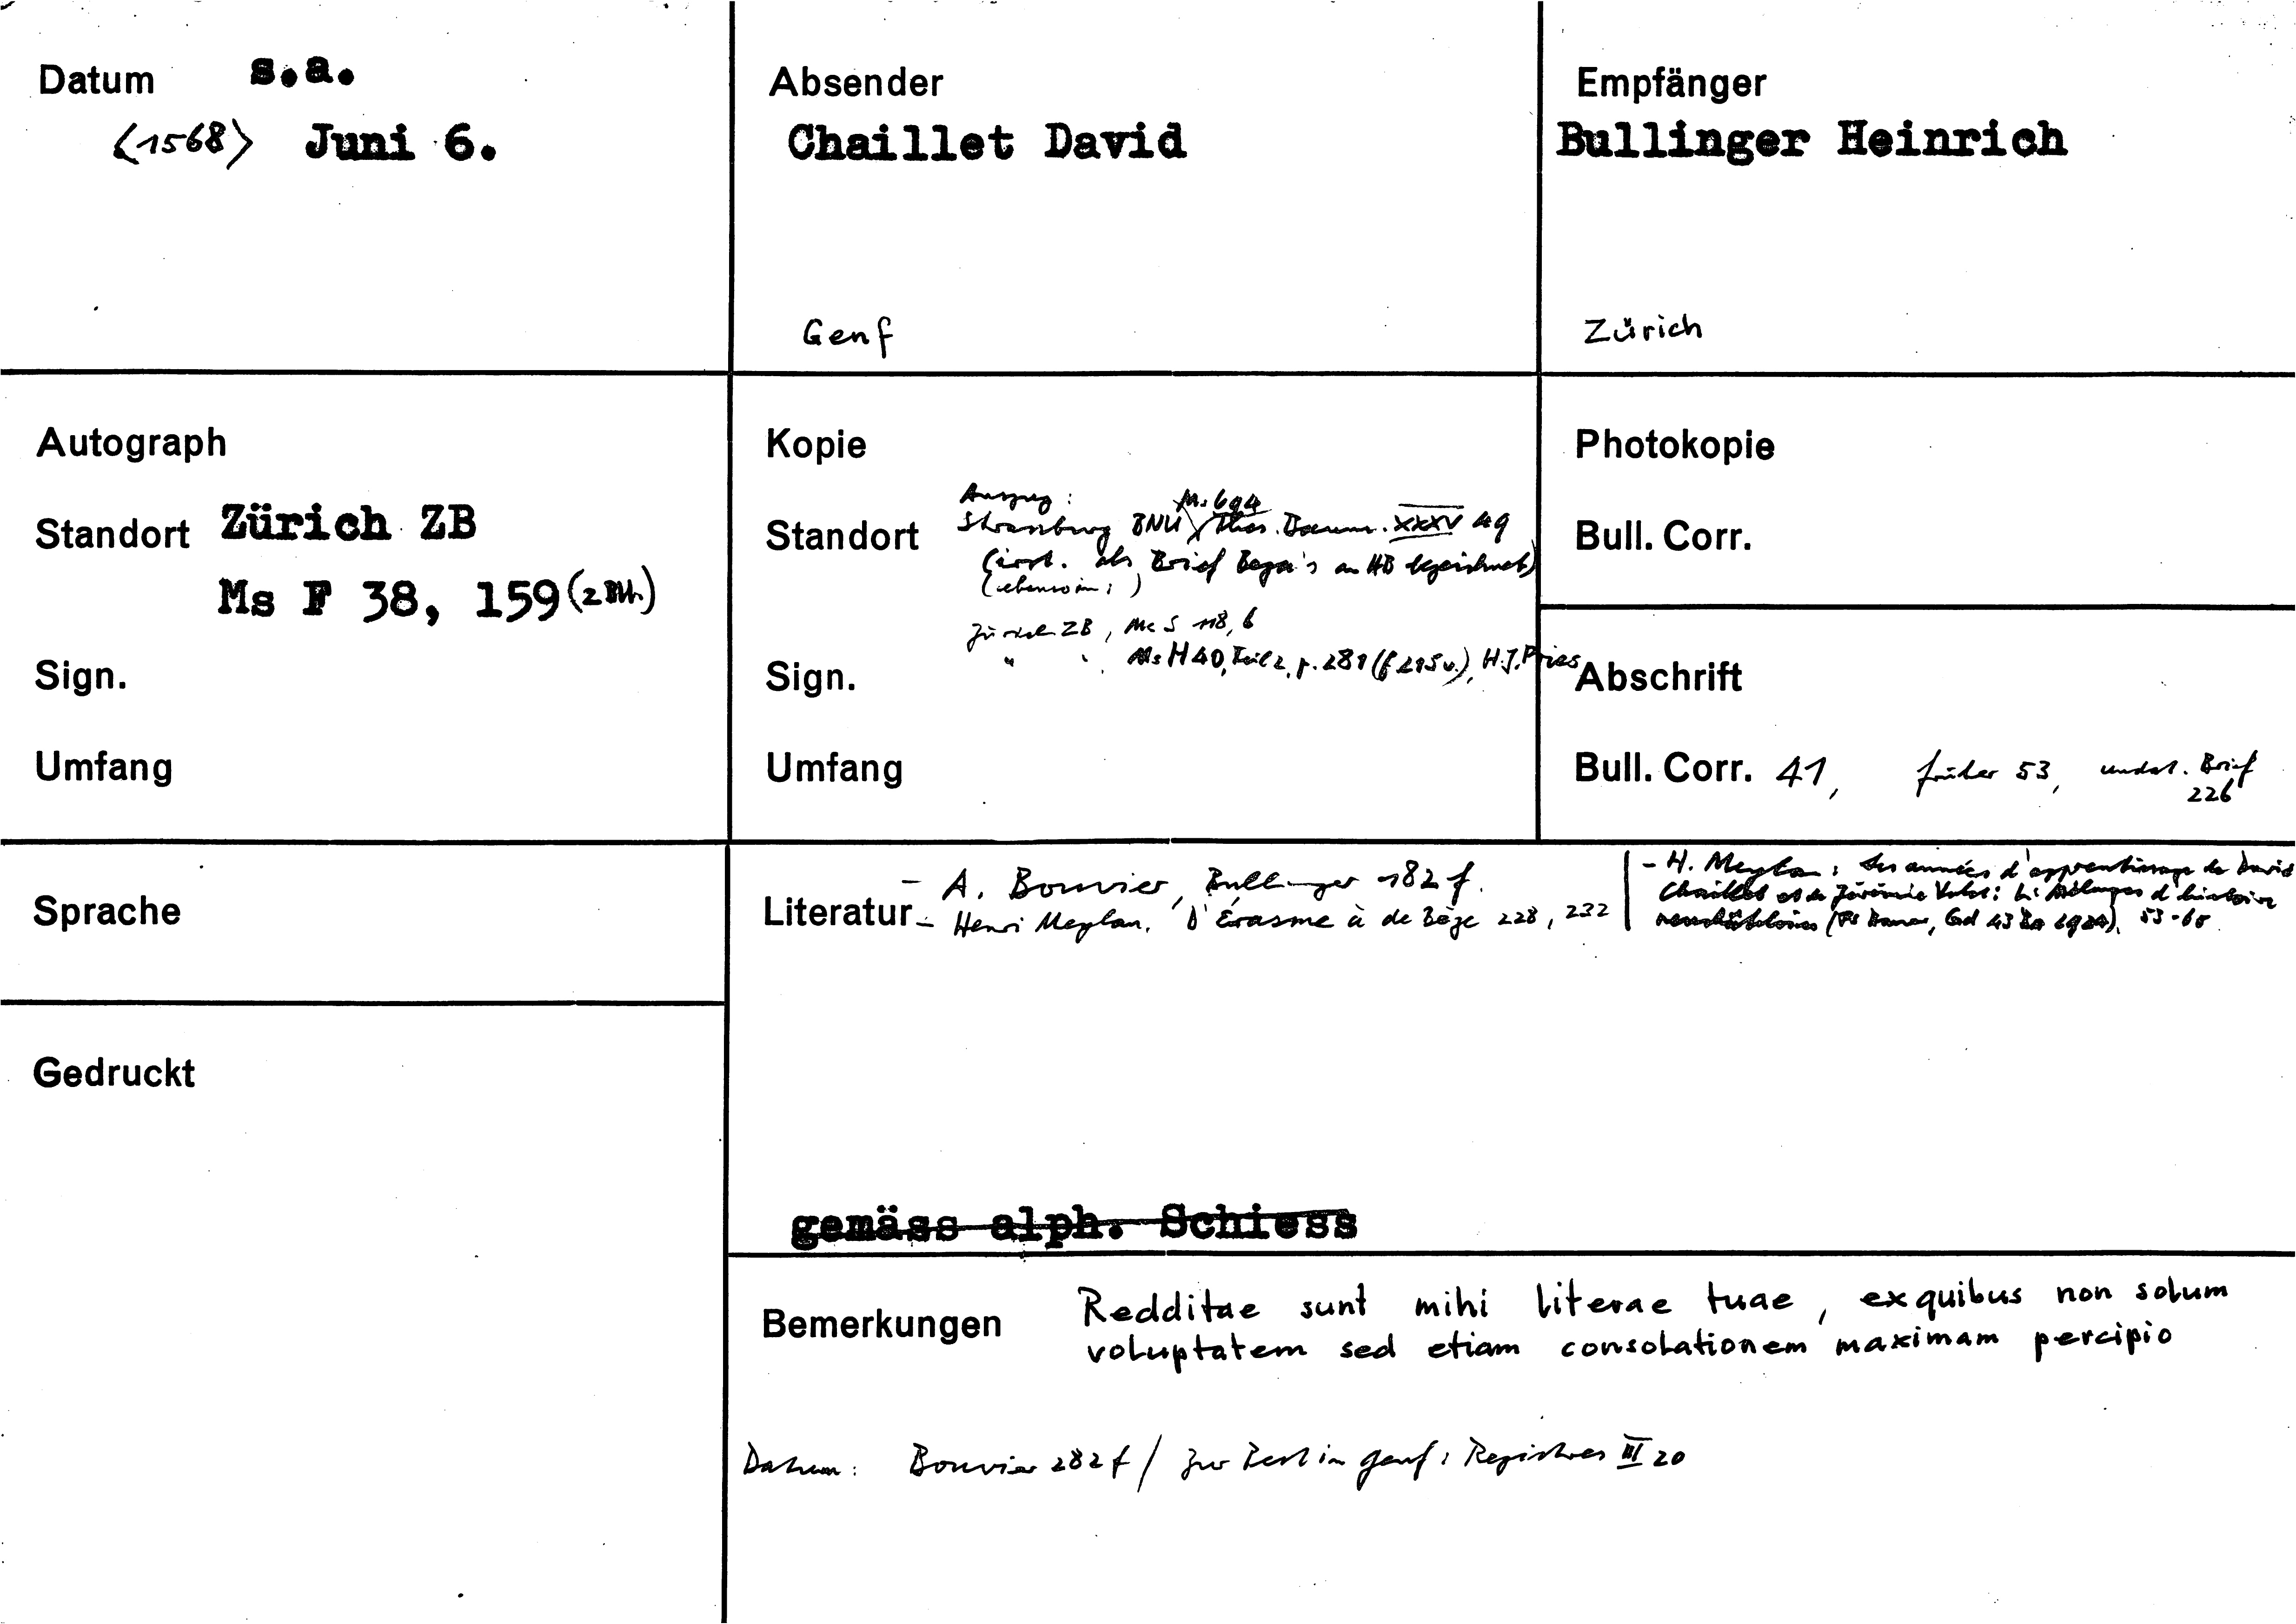 Datum s.a.
<1568> Juni 6.
Absender
Chaillet David
Genf
Empfänger
Bullinger Heinrich
Zürich
Autograph
Standort Zürich ZB
Ms F 38, 159 (2 Bll.)
Sign.
Umfang
Kopie
Auszug:
Ms 694
Standort Strassburg BNU Thes. Baum. XXXV 49
(irrt. als Brief Beza's an HB bezeichnet)
(ebenso in:)
Zürich ZB, Ms S 118, 6
" " Ms H 40, Teil 2, p. 281 (f 215 v.), H.J. Fries
Sign.
Umfang
Photokopie
Bull. Corr.
Abschrift
Bull. Corr. 41, früher 53, undat. Brief
226
Sprache
Gedruckt
Literatur
- A. Bouvier, Bullinger 182 f.
- Henri Meylan, D'Érasme à de Bèze 228, 232
- H. Meylan: Les années d'apprentissage de David
Chaillet et de Jérémie : in: Mélanges d'histoire
53-65
gemäss alph. Schiess
Bemerkungen Redditae sunt mihi literae tuae, ex quibus non solum
voluptatem sed etiam consolationem maximam percipio
Datum: Bouvier 282 f / zur Pest in Genf: Registres III 20